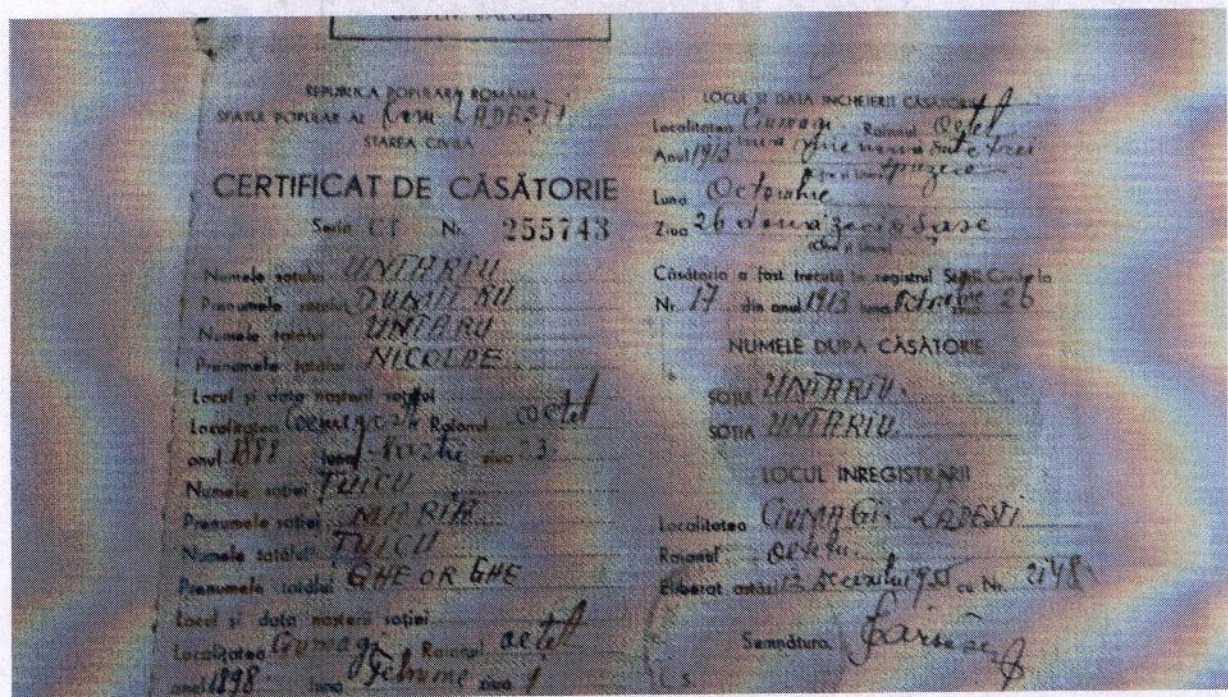 REPUBLICA POPULARĂ ROMÂNĂ
SFATUL POPULAR AL Com LĂDEȘTI
STAREA CIVILĂ
CERTIFICAT DE CĂSĂTORIE
Seria CT Nr. 255743
Numele soțului UNTARIU
Prenumele soțului DUMITRU
Numele tatălui UNTARU
Prenumele tatălui NICOLAE
Locul și data nașterii soțului
Localitatea Raionul Oțetel
anul luna ziua 23
Numele soției ȚUICU
Prenumele soției MARIA
Numele tatălui ȚUICU
Prenumele tatălui GHEORGHE
Locul și data nașterii soției
Localitatea Ciumagi Raionul
anul 1898 luna ziua 1
LOCUL ȘI DATA ÎNCHEIERII CĂSĂTORIEI
Localitatea Ciumagi Raionul
Anul 1913 una mie noua sute trei
Luna Octombrie
Ziua 26 doua zeci si sase
Căsătoria a fost trecută în registrul Stării Civile la
Nr. 17 din anul 1913 luna Octombrie 26
NUMELE DUPĂ CĂSĂTORIE
SOȚUL UNTARIU
SOȚIA UNTARIU
LOCUL ÎNREGISTRĂRII
Localitatea CIUMAGI LĂDEȘTI
Raionul
Eliberat astăzi 12 Decembrie cu Nr. 2148
Semnătura,
L. S.